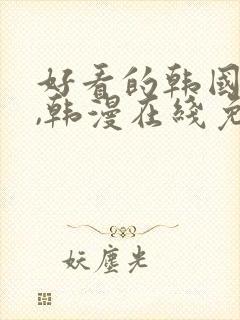 好看的韩国
,韩漫在线免
妖尘光